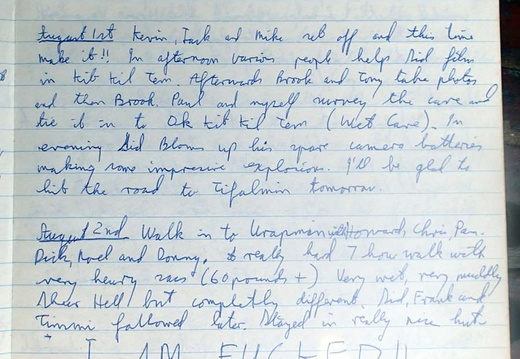 August 1st Kevin, Jack and Mike set off and this time
make it!! In afternoon various people help Sid film
in Kit Kil Tem. Afterwards Brook and Tony take photos
and then Brook, Paul and myself survey the cave and
tie it in to Ok Kit Kil Tem (Wet Cave). In
evening Sid Blows up his spare camera batteries
making some impressive explosion. I'll be glad to
hit the road to Tifalmin tomorrow.
August 2nd Walk in to Urapmin with Howard, Chris, Pam,
Dick, Noel and Donny. A really hard 7 hour walk with
very heavy sacs (60 pounds +) Very wet, very muddy
Sheer Hell but completly different. Sid, Frank and
Timmi followed later. Stayed in really nice hut
I AM FUCKED!!